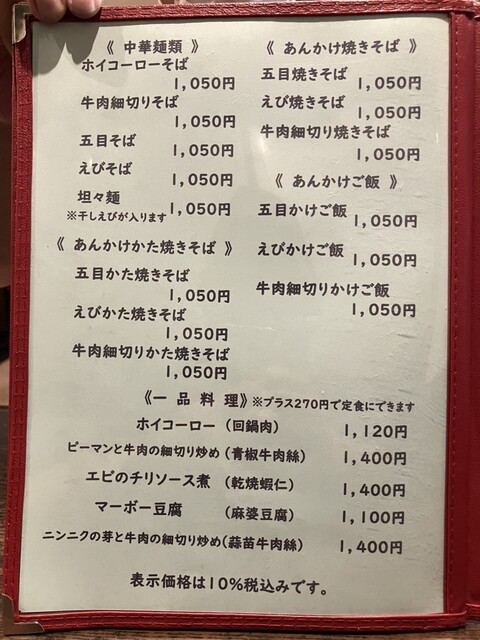 《 中華麺類 》
ホイコーローそば
1,050円
牛肉細切りそば
1,050円
五目そば
1,050円
えびそば
1,050円
坦々麺
※干しえびが入ります
1,050円
《 あんかけかた焼きそば 》
五目かた焼きそば
1,050円
えびかた焼きそば
1,050円
牛肉細切りかた焼きそば
1,050円
《 あんかけ焼きそば 》
五目焼きそば
1,050円
えび焼きそば
1,050円
牛肉細切り焼きそば
1,050円
《 あんかけご飯 》
五目かけご飯
1,050円
えびかけご飯
1,050円
牛肉細切りかけご飯
1,050円
《一 品 料 理》※プラス270円で定食にできます
ホイコーロー (回鍋肉) 1,120円
ピーマンと牛肉の細切り炒め (青椒牛肉絲) 1,400円
エビのチリソース煮 (乾焼蝦仁) 1,400円
マーボー豆腐 (麻婆豆腐) 1,100円
ニンニクの芽と牛肉の細切り炒め(蒜苗牛肉絲) 1,400円
表示価格は10%税込みです。